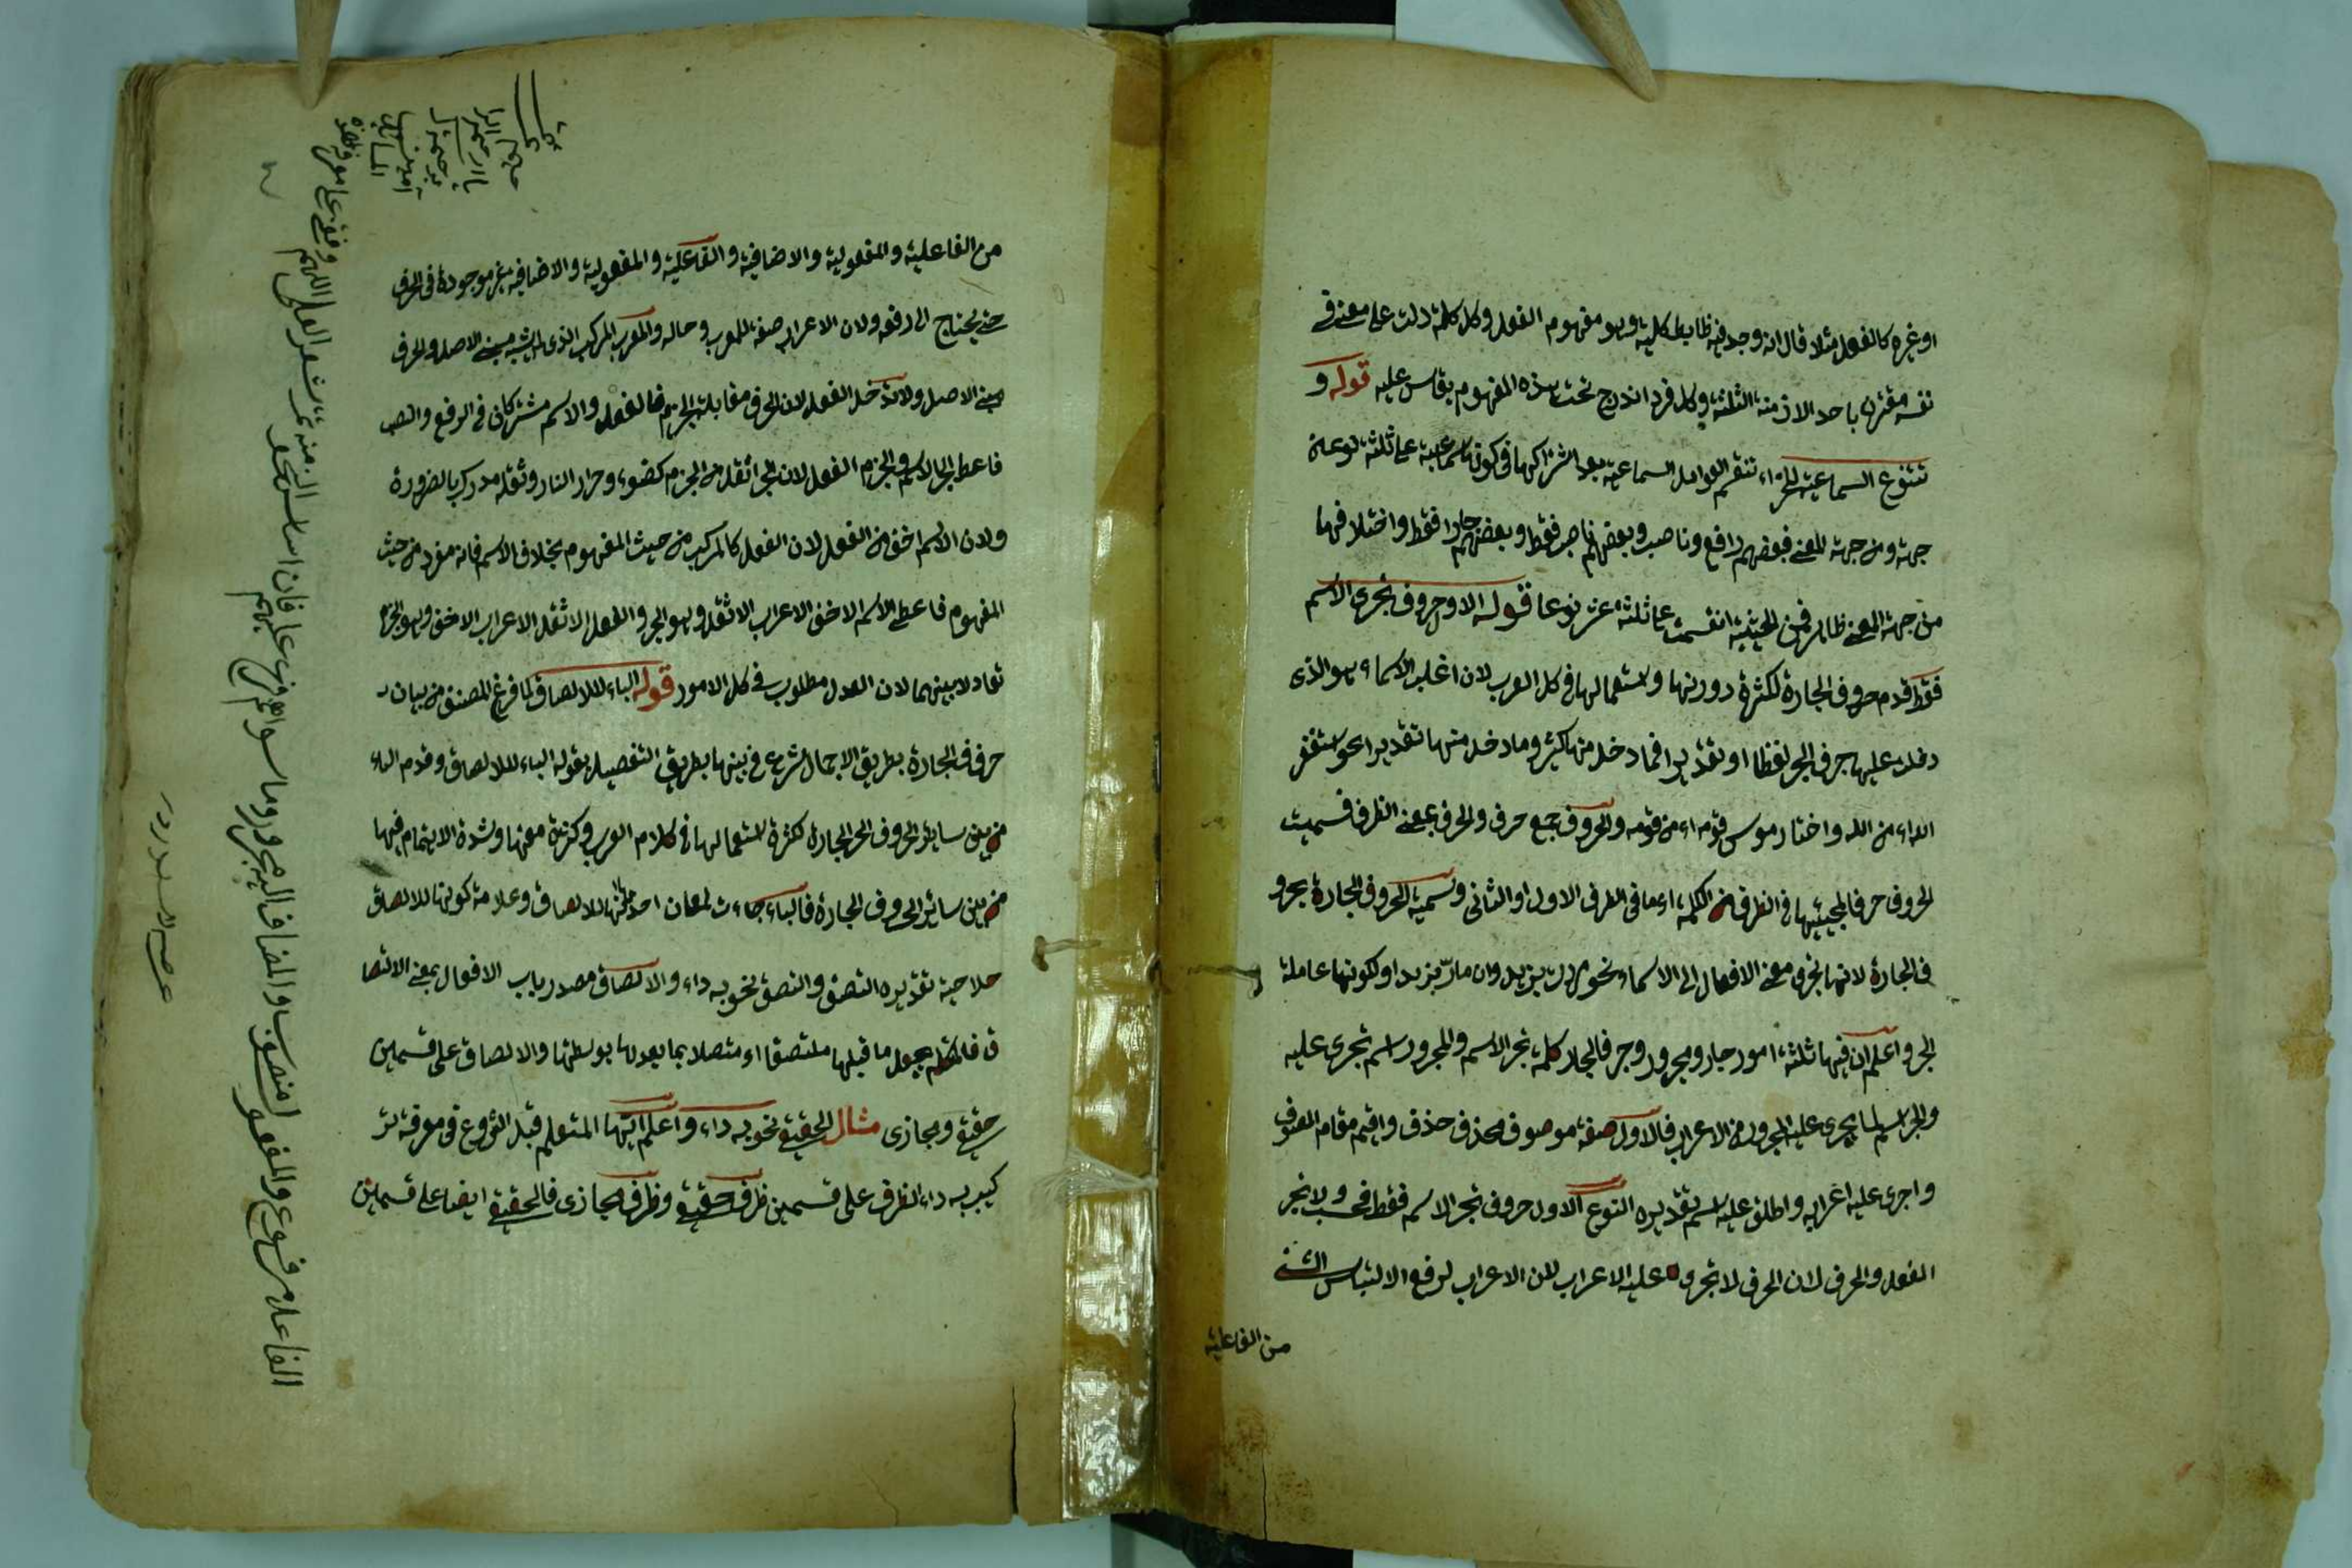 او غيره كالفعل مثلا قال انه وجد فيه ظابط كلية وهو مفهوم الفعل وكل كلمة دلت على معنى في
نفسه مقترن باحد الازمنة الثلثة وكل فرد اندرج تحت هذه المفهوم يقاس عليه قوله و
تتنوع السماعية الخ اء تنقسم العوامل السماعية بعد اشتراكها في كونها سماعية على ثلثة نوعه
جهة ومن جهة المعنى فبعضهم رافع وناصب وبعضهم ناصب فقط وبعضهم جارا فقط واختلافها
من جهة المعنى ظاهر فمن الحيثية انقسمت على ثلثة عشر نوعا قوله الاول حروف تجرى الاسم
فقط قدم حروف الجارة لكثرة دورنها واستعمالها في كل العرب لان اغلب الاسماء هو الذى
دخلت عليها حرف الجر لفظا او تقديرا فما دخل منها كثير وما دخل منها تقديرا نحو استغفر
الله اء من الله واختار موسى قومه اء من قومه والحروف جمع حرف والحرف بمعنى الطرف فسميت
الحروف حرفا لمجيئها في الطرف من الكلمة اء ما في الطرف الاول او الثانى وتسمية الحروف الجارة بحرو
ف الجارة لانها تجرى معنى الافعال الى الاسماء نحو مررت بزيد وان مار بزيد او لكونها عاملة
الجر واعلم ان فيها ثلثة امور جار ومجرور وجر فالجار كلمة تجر الاسم والمجرور اسم تجرى عليه
والجر اسم لما يجرى على المجرور من الاعراب فالاول صفة موصوف محذوف حذف واقيم مقام الصوف
واجرى عليه اعرابه واطلق عليه اسم تقديره النوع الاول حروف تجر الاسم فقط فحسب ولا تجر
الفعل والحرف لان الحرف لا تجر و عليه الاعراب للن الاعراب لرفع الالتباس الشئ
من الفاعلية
من الفاعلية والمفعولية والاضافية والفاعلية والمفعولية والاضافية غير موجودة في الحرف
حتى يحتاج الى رفعه ولان الاعراب صفة للمعرب وحاله والمعرب المركب الذى لم يشبه مبنى الاصل والحرف
مبنى الاصل ولا تدخل الفعل لان الجر في مقابلة الجزم فالفعل والاسم مشتركان في الرفع والنصب
فاعطى الجر الاسم والجزم الفعل لان الجر اثقل من الجزم كضوء وحرار النار وثقله مدرك بالضرورة
ولان الاسم اخف من الفعل لان الفعل كالمركب من حيث المفهوم بخلاف الاسم فانه مفرد من حيث
المفهوم فاعطى الاسم الاخف الاعراب الاثقل وهو الجر والفعل الاثقل الاعراب الاخف وهو الجزم
تعادلا بينهما لان العدل مطلوب في كل الامور قوله الباء للالصاق لما فرغ المصنف من بيان
حرف الجارة بطريق الاجمال شرع في بينها بطريق التفصيل بقوله الباء للالصاق وقدم الباء
من بين سائر الحروف الجر الجارة لكثرة استعمالها في كلام العرب وكثرة معنها وشدة الاهتمام فيها
من بين سائر الحروف الجارة فالباء جاءت لمعان احد منها للالصاق وعلامة كونها للالصاق
صلاحية تقديره التصق والتصق نحو به داء والالصاق مصدر باب الافعال بمعنى الالتصا
ق فالمتكلم يجعل ما قبلها ملتصقا اء متصلا بما بعدها بواسطتها والالصاق على قسمين
حقيقى ومجازى مثال الحقيقى نحو به داء واعلم ايها المتعلم قبل الشروع في معرفة تر
كيب به داء الظرف على قسمين ظرف حقيقى وظرف مجازى فالحقيقى ايضا على قسمين
الفاعل مرفوع والمفعول منصوب والمضاف اليه مجرور وما سواهم فرع عليهم